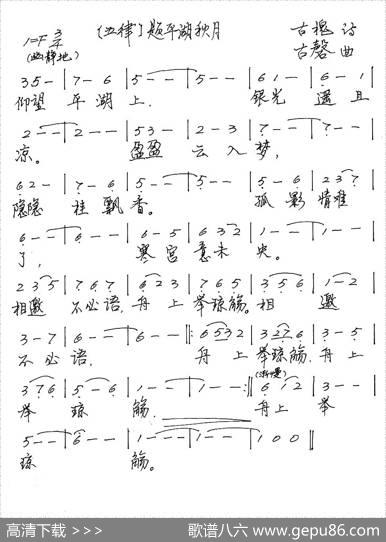 [五律] 题平湖秋月
1=F 3/4
古槐 诗
(幽静地)
古磬 曲
3 5 - | 7 - 6 | 5 - - | 5 - - | 6 1 - | 6 - 1 |
仰望 平 湖 上. 银光 遥 且
2 - - | 2 - - | 5 3 - | 2 - 3 | 7 - - | 7 - - |
凉。 盈盈 云 入 梦,
6 2 - | 7 - 6 | 5 - - | 5 - - | 5 - 6 | 2 3 7 |
隐隐 桂 飘 香。 孤 影 情难
6 - - | 6 - - | 6 - 5 | 6 3 2 | 1 - - | 1 - - |
了, 寒 宫 意未 央。
2 3 5 | 7 6 7 | 6 2 3 | 7 6 5 | 3 5 6 | 1 - 2 |
相邀 不必语, 舟 上 举琼觞. 相 邀
3 - 7 | 6 - - | 6 - - |: 6 5 3 2 | 3 2 7 6 | 3 - 5 |
不 必 语, 舟 上 举琼觞, 舟 上
3 7 6 | 5 - 6 | 1 - - | 1 - - :| 6 1 2 | 3 - - |
举 琼 觞. 舟上 举
5 - - | 6 - - | 1 - - | 1 - - | 1 0 0 ||
琼 觞。
高清下载 >>>
歌谱八六 www.gepu86.com